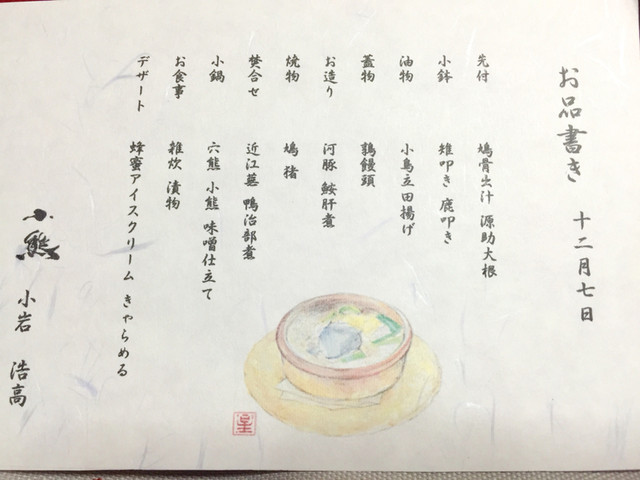 お品書き 十二月七日
先付 鳩骨出汁 源助大根
小鉢 雉叩き 鹿叩き
油物 小鳥立田揚げ
蓋物 鶉饅頭
お造り 河豚 鮟肝煮
焼物 鳩 猪
焚合せ 近江蕪 鴨治部煮
小鍋 穴熊 小熊 味噌仕立て
お食事 雑炊 漬物
デザート 蜂蜜アイスクリーム きゃらめる
小熊 小岩 浩高